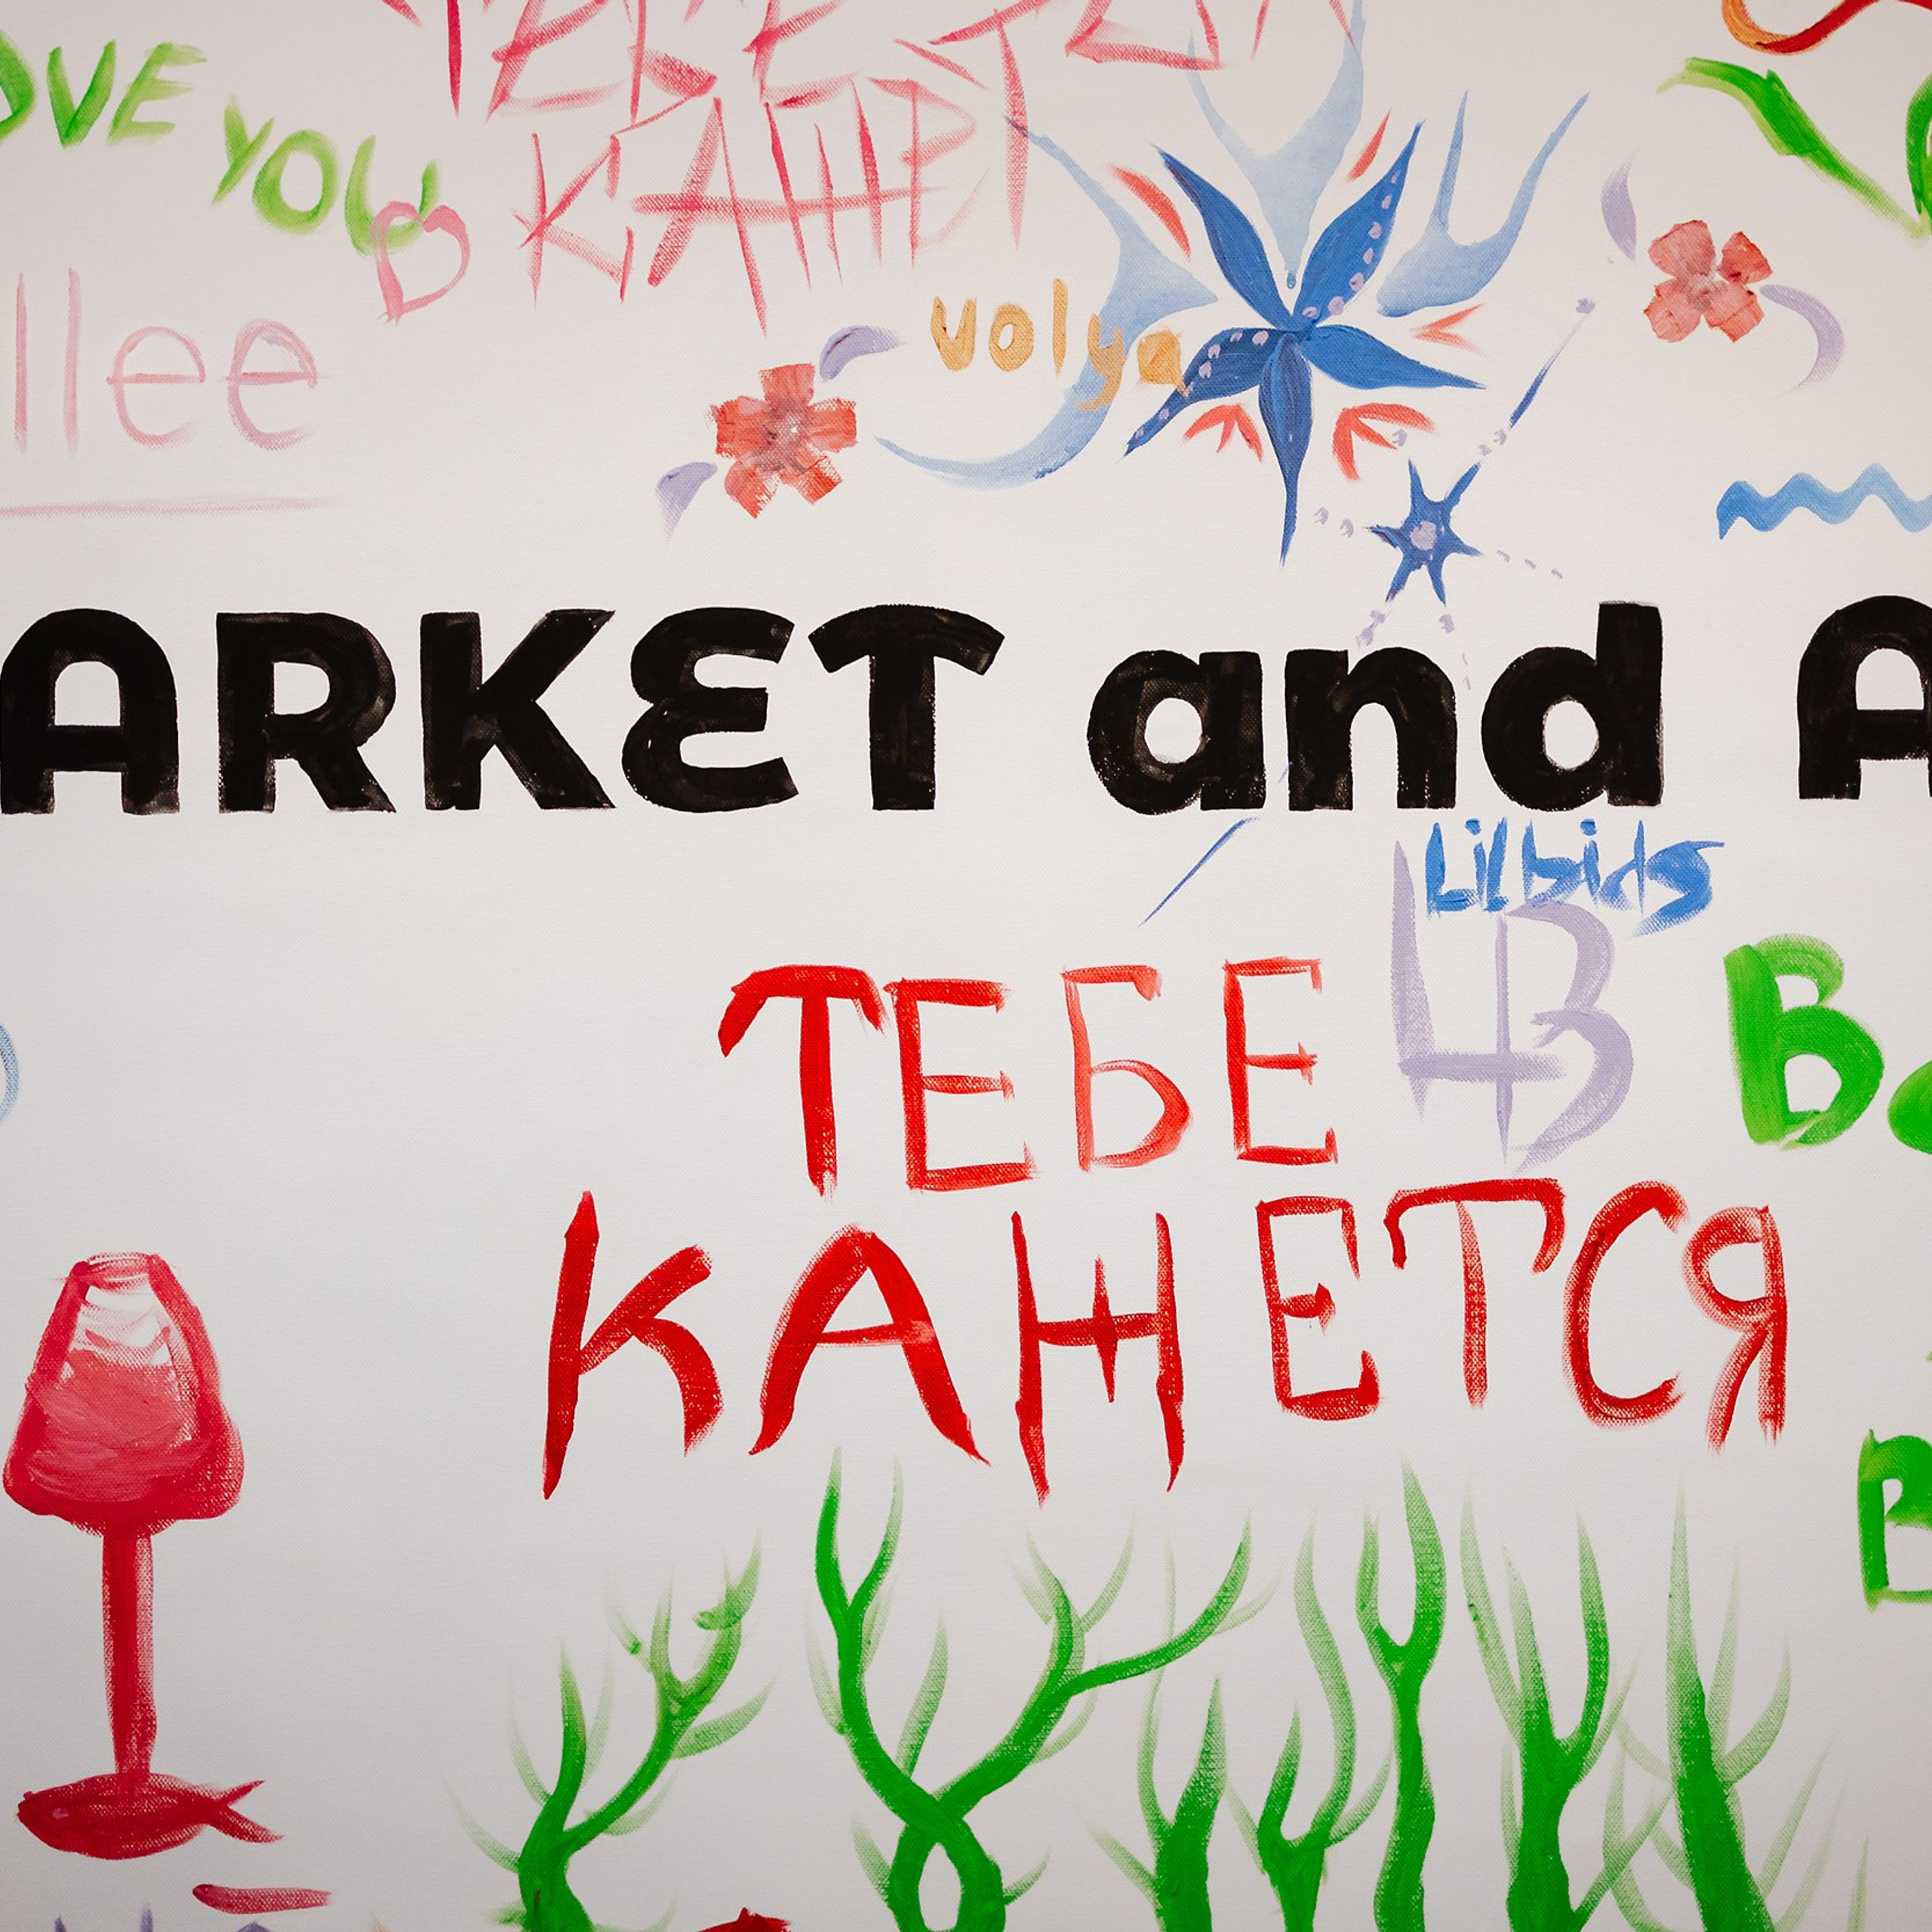 ТЕБЕ
OVE YOU
КАЖЕТ
llee
volya
ARKET and A
Lil bids
ТЕБЕ
КАЖЕТСЯ